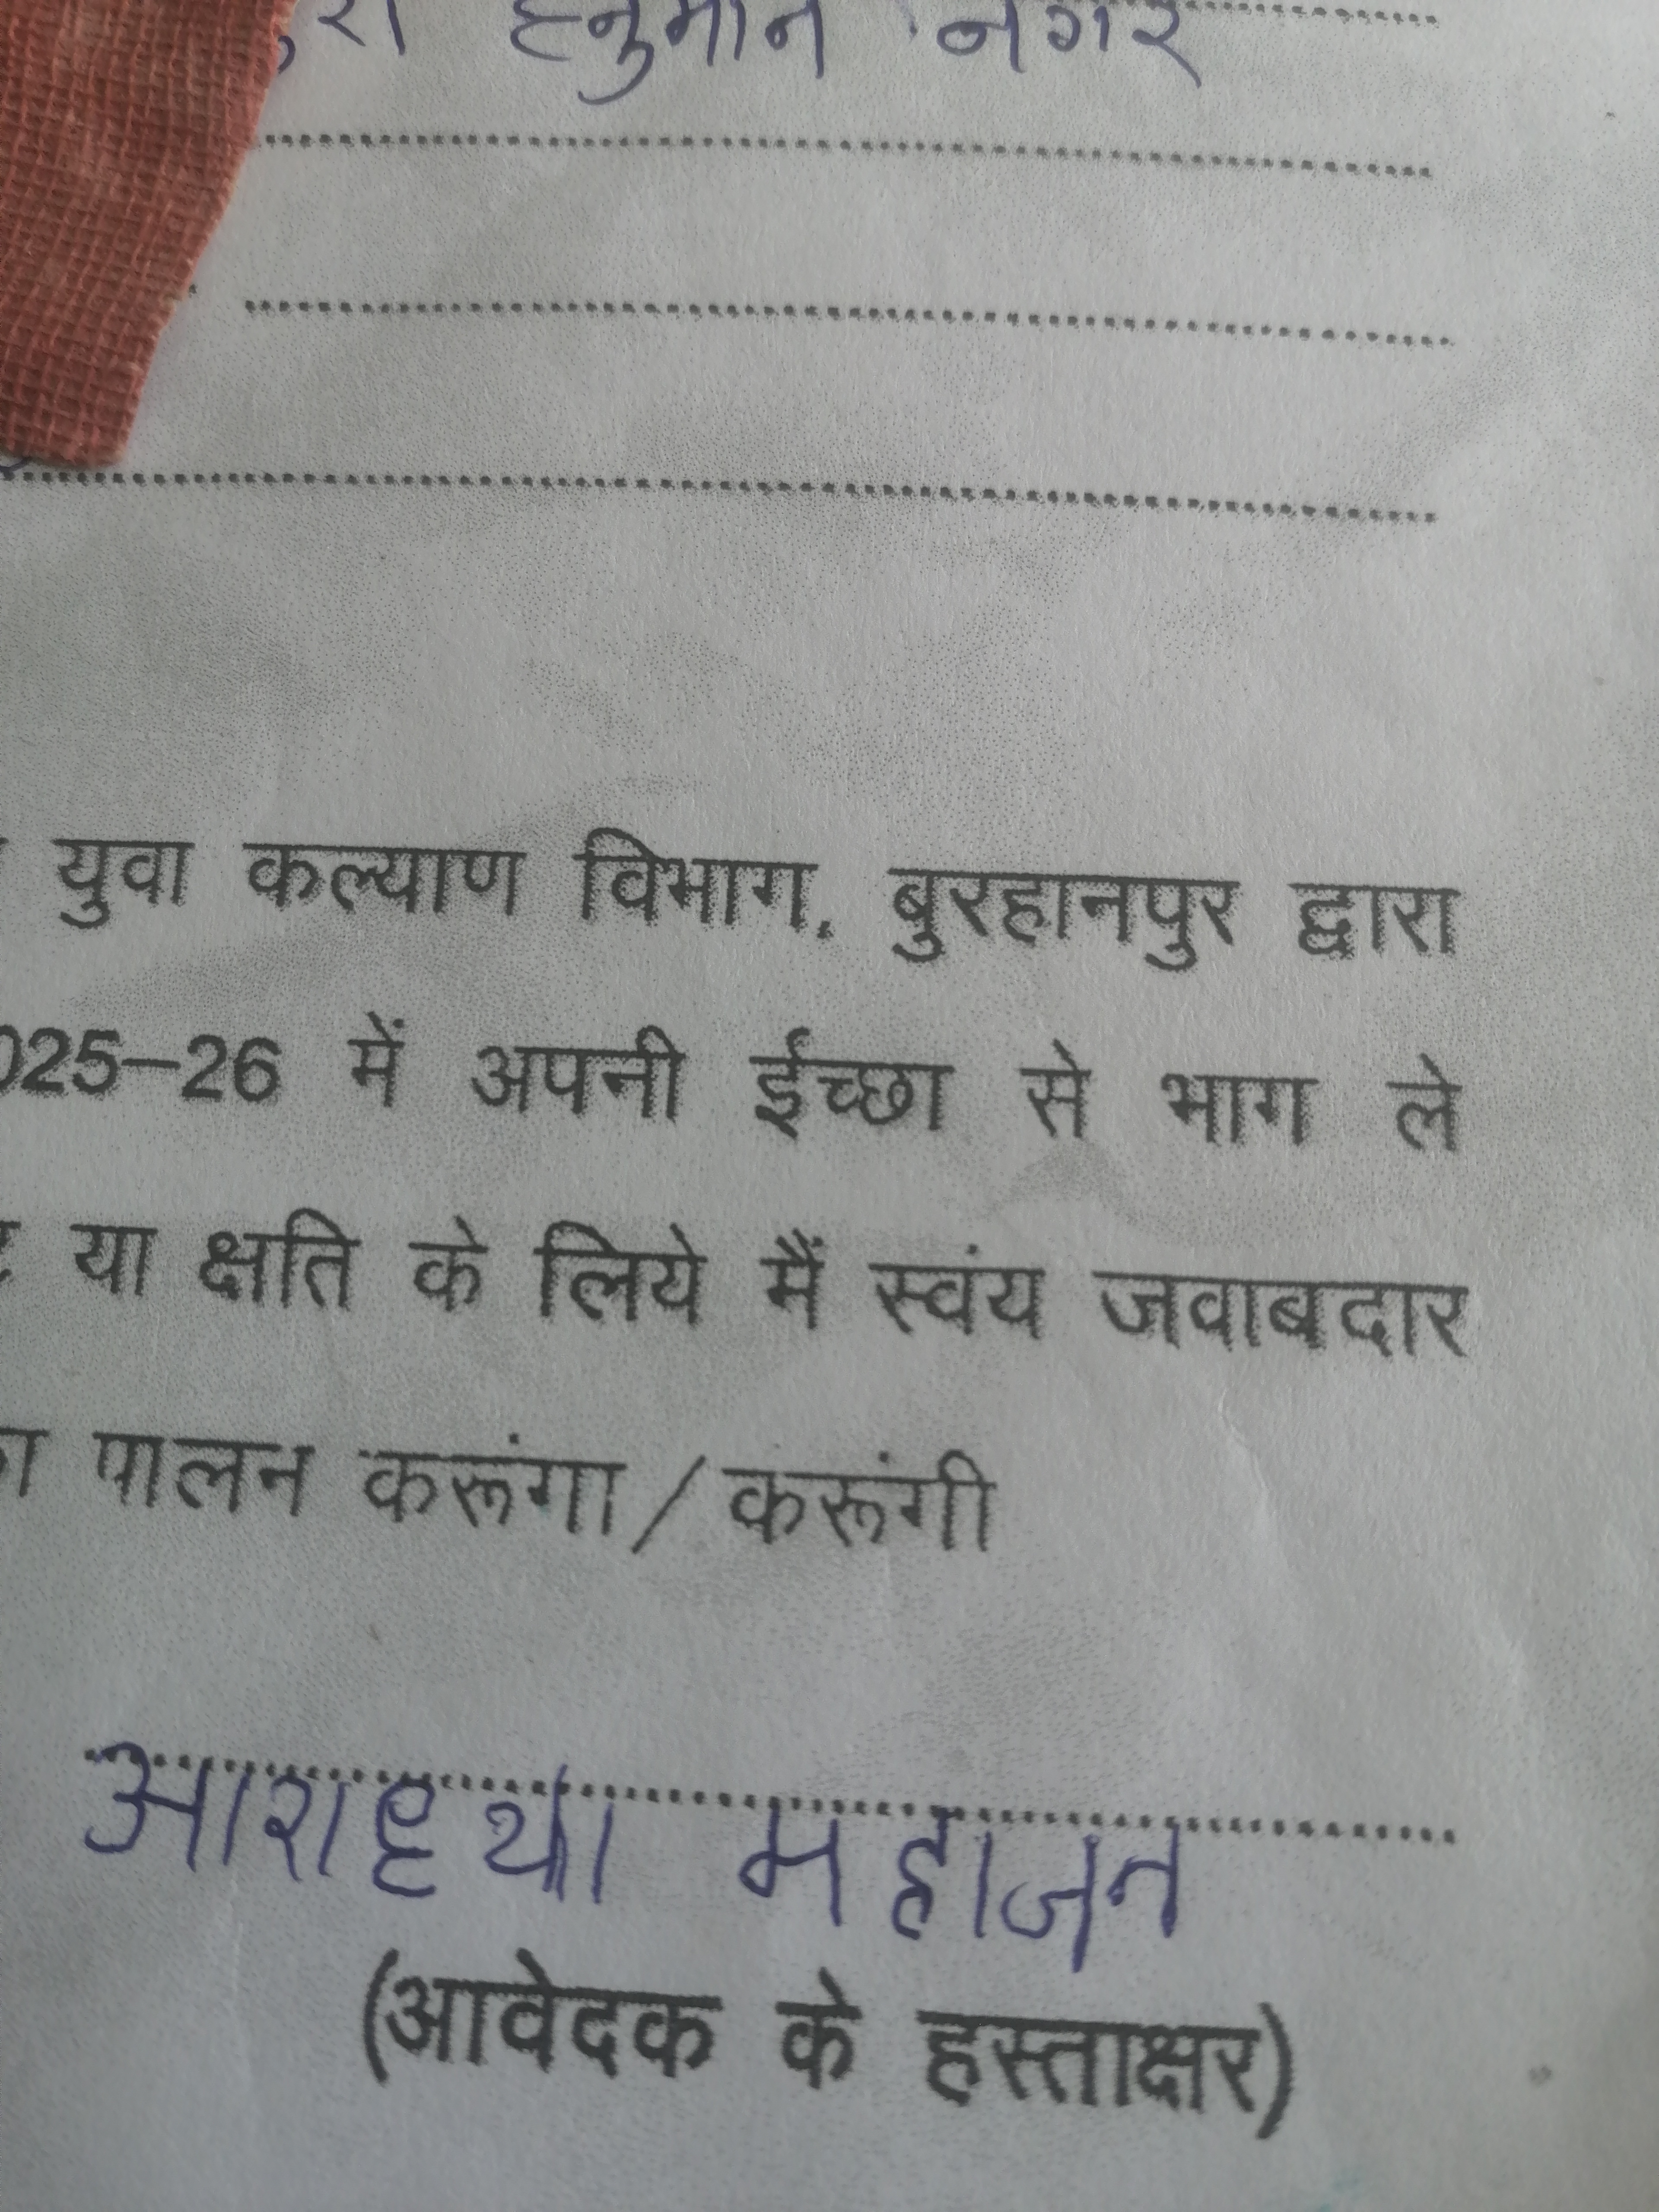 हनुमान नगर
युवा कल्याण विभाग, बुरहानपुर द्वारा
025-26 में अपनी ईच्छा से भाग ले
या क्षति के लिये मैं स्वंय जवाबदार
पालन करूंगा/करूंगी
आराध्या महाजन
(आवेदक के हस्ताक्षर)